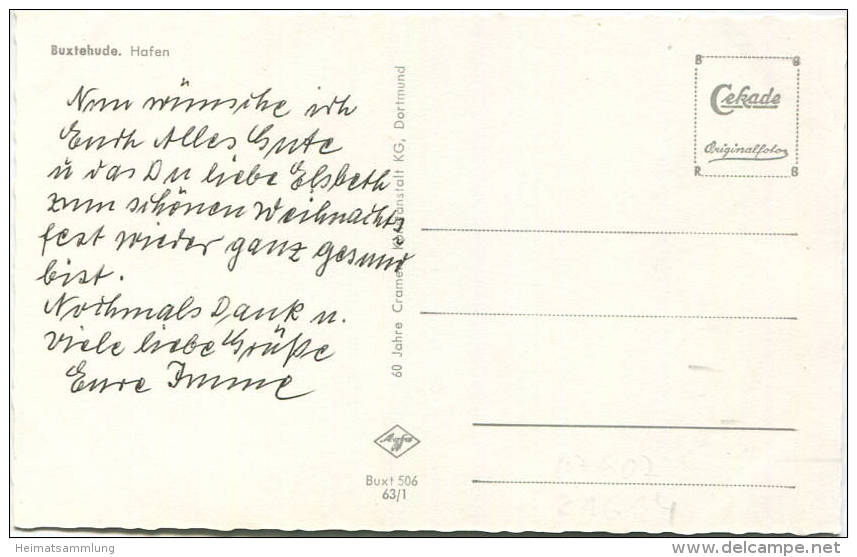 Buxtehude. Hafen
Nun wünsche ich
Euch Alles Gute
u das Du liebe Elsbeth
zum schönen Weihnachts
fest wieder ganz gesund
bist.
Nochmals Dank u.
viele liebe Grüße
Eure Imme
60 Jahre Cramers Kunstanstalt KG, Dortmund
Agfa
Buxt 506
63/1
B B
Cekade
Originalfoto
R B
Heimatsammlung
www.delcampe.net